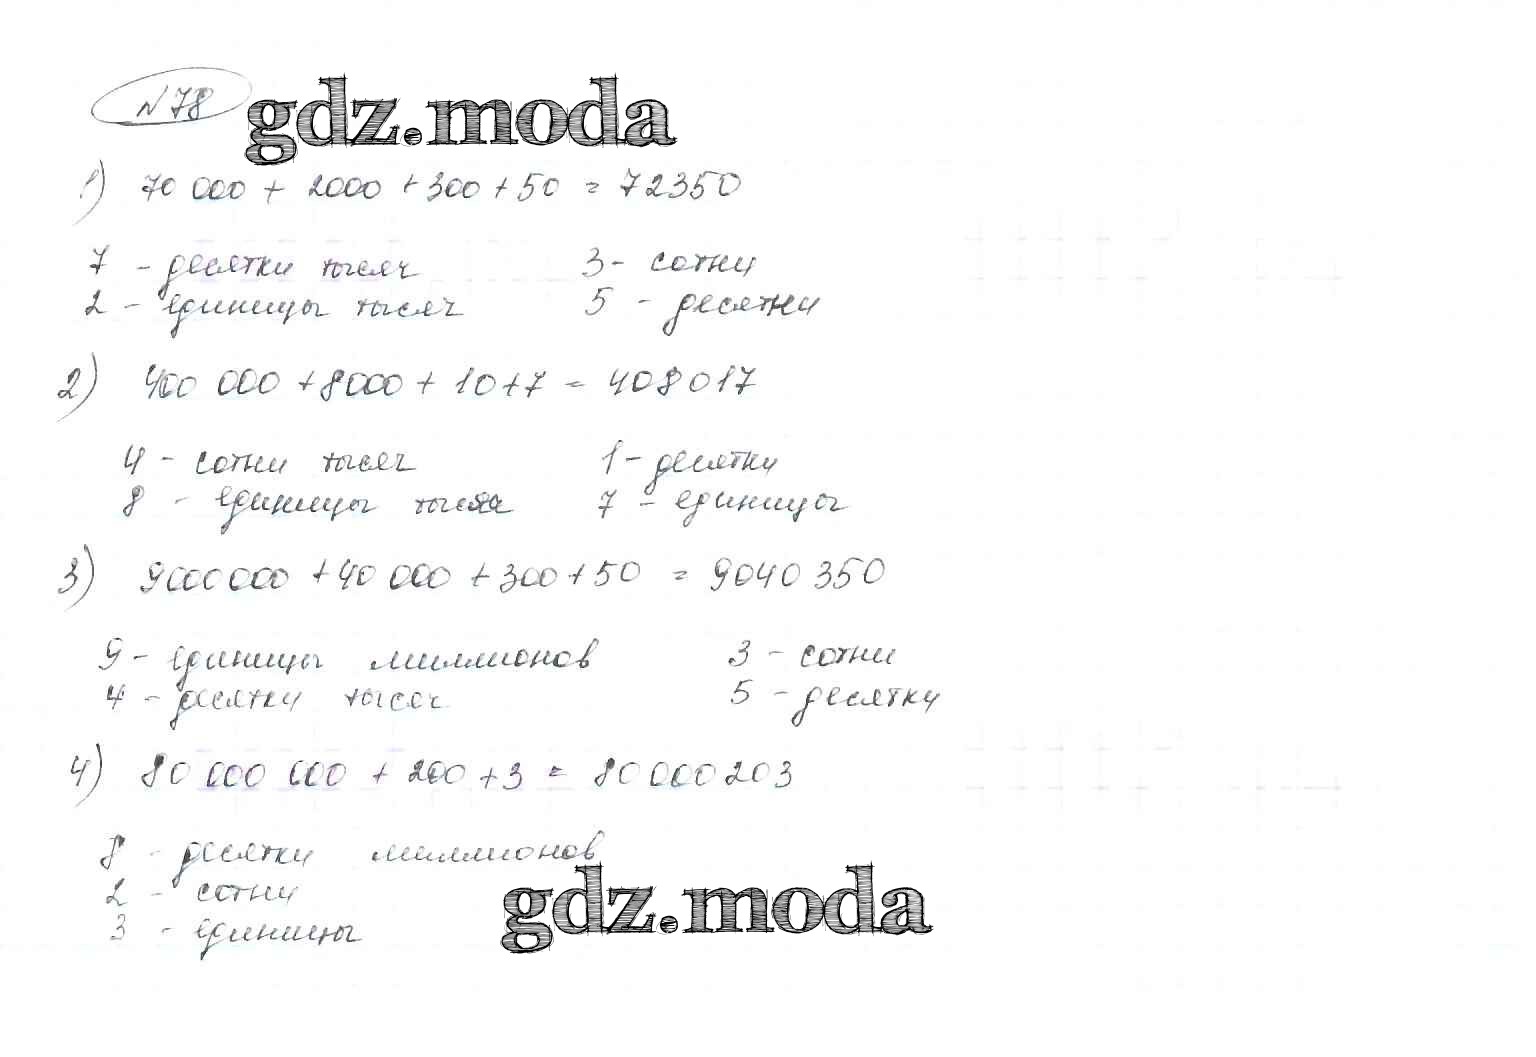 № 78 gdz.moda
1) 70 000 + 2000 + 300 + 50 = 72350
7 - десятки тысяч 3 - сотни
2 - единицы тысяч 5 - десятки
2) 400 000 + 8000 + 10 + 7 = 408017
4 - сотни тысяч 1 - десятки
8 - единицы тысяч 7 - единицы
3) 9000000 + 40 000 + 300 + 50 = 9040 350
9 - единицы миллионов 3 - сотни
4 - десятки тысяч 5 - десятки
4) 80 000 000 + 200 + 3 = 80 000 203
8 - десятки миллионов
2 - сотни
3 - единицы
gdz.moda